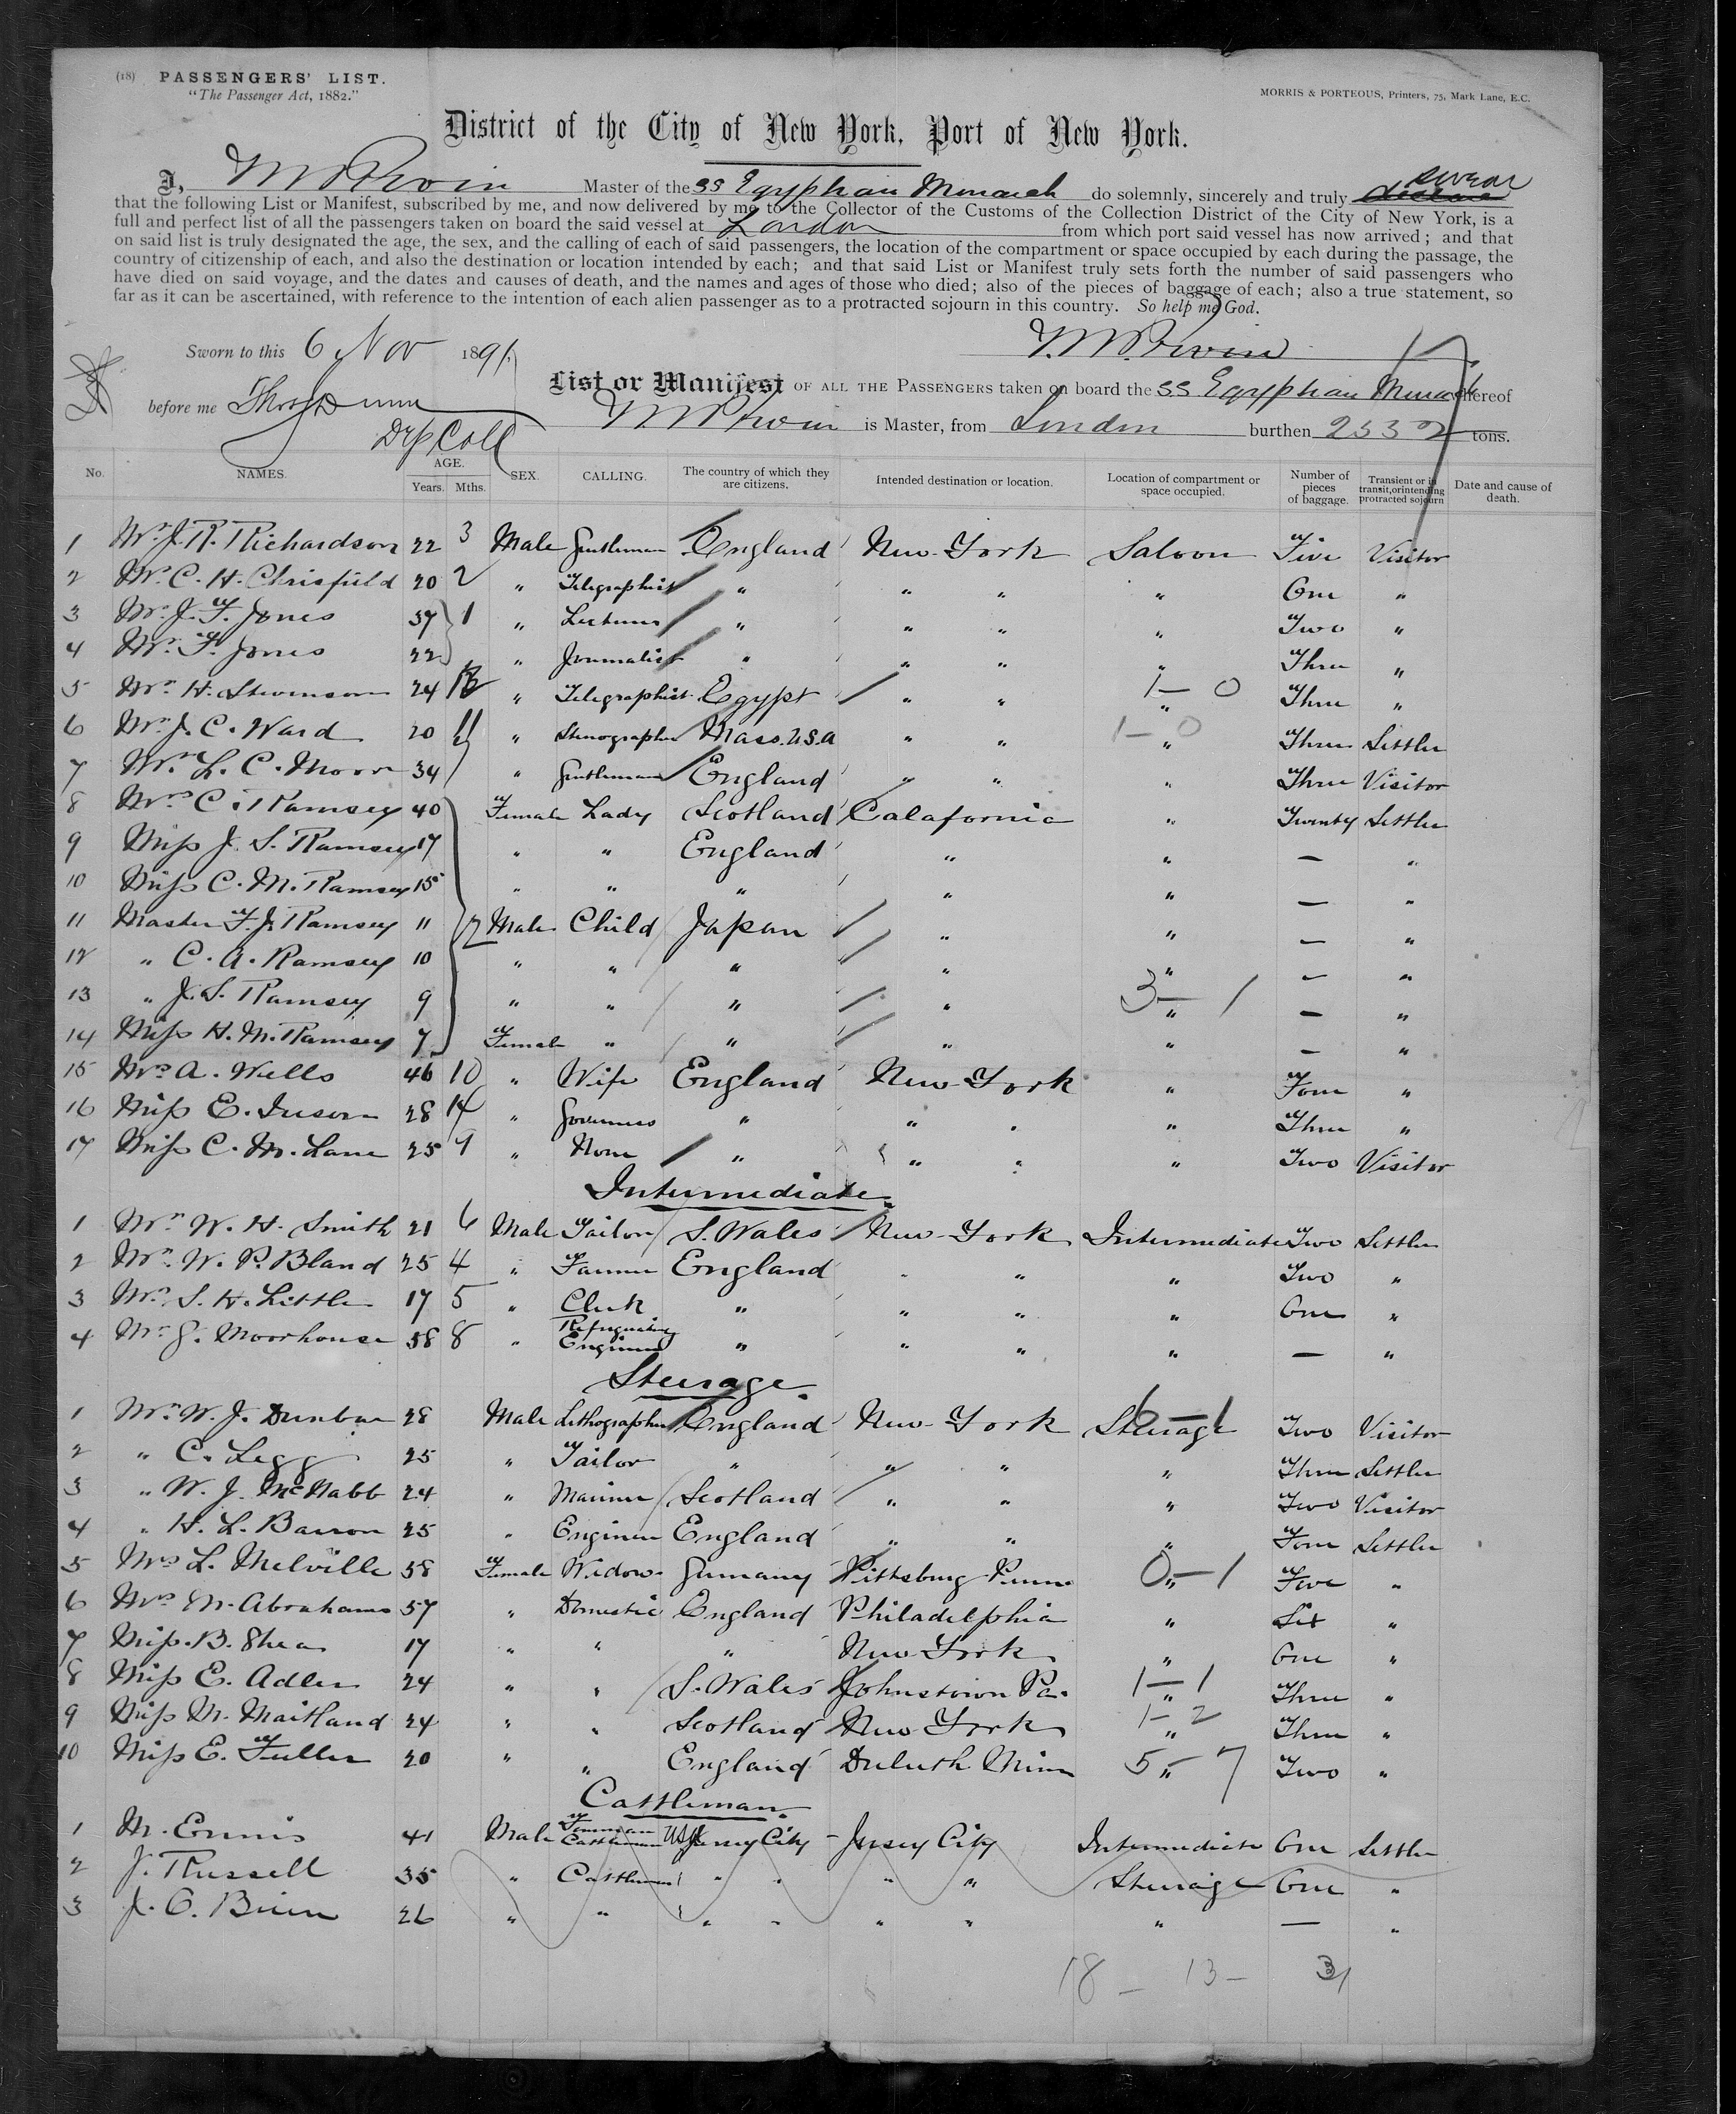 (18) PASSENGERS' LIST.
"The Passenger Act, 1882."
MORRIS & PORTEOUS, Printers, 75, Mark Lane, E.C.
District of the City of New York, Port of New York.
I, Irwin Master of the SS Egyptian Monarch do solemnly, sincerely and truly declare swear
that the following List or Manifest, subscribed by me, and now delivered by me to the Collector of the Customs of the Collection District of the City of New York, is a
full and perfect list of all the passengers taken on board the said vessel at London from which port said vessel has now arrived; and that
on said list is truly designated the age, the sex, and the calling of each of said passengers, the location of the compartment or space occupied by each during the passage, the
country of citizenship of each, and also the destination or location intended by each; and that said List or Manifest truly sets forth the number of said passengers who
have died on said voyage, and the dates and causes of death, and the names and ages of those who died; also of the pieces of baggage of each; also a true statement, so
far as it can be ascertained, with reference to the intention of each alien passenger as to a protracted sojourn in this country. So help me God.
Irwin
Sworn to this 6 Nov 1891.
17
List or Manifest OF ALL THE PASSENGERS taken on board the SS Egyptian Monarch whereof
before me Thos Dunn
Irwin is Master, from London burthen 2532 tons.
Dep Coll
No. NAMES. AGE. Years. Mths. SEX. CALLING. The country of which they are citizens. Intended destination or location. Location of compartment or space occupied. Number of pieces of baggage. Transient or in transit, or intending protracted sojourn Date and cause of death.
1 Mr. J. R. Richardson 22 3 Male Gentleman England New York Saloon Five Visitor
2 Mr. C. H. Chrisfield 20 2 " Telegraphist " " " " One "
3 Mr. J. F. Jones 37 1 " Lecturer " " " " Two "
4 Mr. F. Jones 22 " Journalist " " " " Three "
5 Mr. H. Stevenson 24 " Telegraphist Egypt " " " 1 - 0 Three "
6 Mr. J. C. Ward 20 11 " Stenographer Mass. U.S.A " " " 1 - 0 Three Settler
7 Mr. L. C. Moor 34 " Gentleman England " " " Three Visitor
8 Mrs. C. Ramsey 40 Female Lady Scotland Calafornia " Twenty Settler
9 Miss J. S. Ramsey 17 " " England " " — "
10 Miss C. M. Ramsey 15 " " " " " — "
11 Master F. J. Ramsey 11 12 Male Child Japan " " — "
12 " C. A. Ramsey 10 " " " " " — "
13 " J. S. Ramsey 9 " " " " " 3 - 1 — "
14 Miss H. M. Ramsey 7 Female " " " " — "
15 Mrs. A. Wells 46 10 " Wife England New York " Four "
16 Miss E. Iveson 28 14 " Governess " " " " Three "
17 Miss C. M. Lane 25 9 " None " " " " Two Visitor
Intermediate.
1 Mr. W. H. Smith 21 6 Male Tailor S. Wales New York Intermediate Two Settler
2 Mr. W. P. Bland 25 4 " Farmer England " " " Two "
3 Mr. S. H. Little 17 5 " Clerk " " " " One "
4 Mr. G. Moorhouse 58 8 " Refrigerating Engineer " " " " — "
Steerage.
1 Mr. W. J. Dunbar 28 Male Lithographer England New York Steerage 6 - 1 Two Visitor
2 " C. Legg 25 " Tailor " " " " Three Settler
3 " W. J. McNabb 24 " Mariner Scotland " " " Two Visitor
4 " H. L. Barron 25 " Engineer England " " " Four Settler
5 Mrs. L. Melville 58 Female Widow Germany Pittsburg Penn. " 0 - 1 Five "
6 Mrs. M. Abrahams 57 " Domestic England Philadelphia " Six "
7 Miss. B. Shea 17 " " " New York " One "
8 Miss E. Adler 24 " " S. Wales Johnstown Pa. " 1 - 1 Three "
9 Miss M. Maitland 24 " " Scotland New York " 1 - 2 Three "
10 Miss E. Fuller 20 " " England Duluth Minn " 5 - 7 Two "
Cattleman.
1 M. Ennis 41 Male Foreman Cattleman USA Jersey City - Jersey City Intermediate One Settler
2 J. Russell 35 " Cattleman " " " " Steerage One "
3 J. O. Brien 26 " " " " " " " — "
18 - 13 - 31